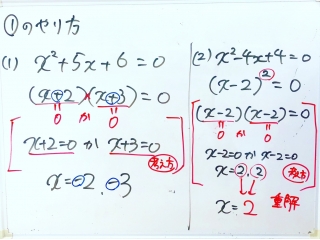 ①のやり方
(1) x²+5x+6=0
(x+2)(x+3)=0
0 か 0
x+2=0 か x+3=0
考え方
x=-2, -3
(2) x²-4x+4=0
(x-2)²=0
(x-2)(x-2)=0
0 か 0
x-2=0 か x-2=0
x=2, 2
考え方
x=2 重解